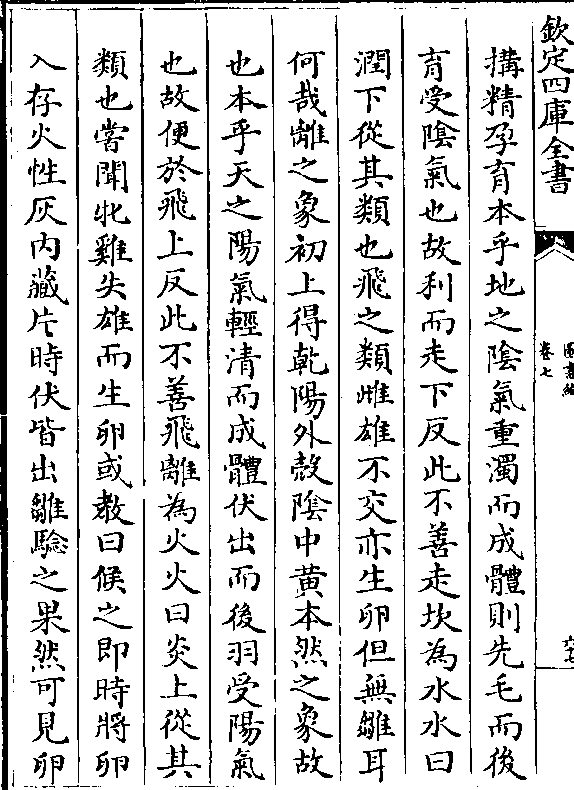 欽定四庫全書
圖書編
卷七
六十七
搆精孕育本乎地之隂氣重濁而成體則先毛而後
育受隂氣也故利而走下反此不善走坎為水水曰
潤下從其類也飛之類雌雄不交亦生卵但無雛耳
何哉離之象初上得乾陽外殼隂中黄本然之象故
也本乎天之陽氣輕清而成體伏出而後羽受陽氣
也故便於飛上反此不善飛離為火火曰炎上從其
類也嘗聞牝雞失雄而生卵或教曰候之即時將卵
入存火性灰内藏片時伏皆出雛驗之果然可見卵